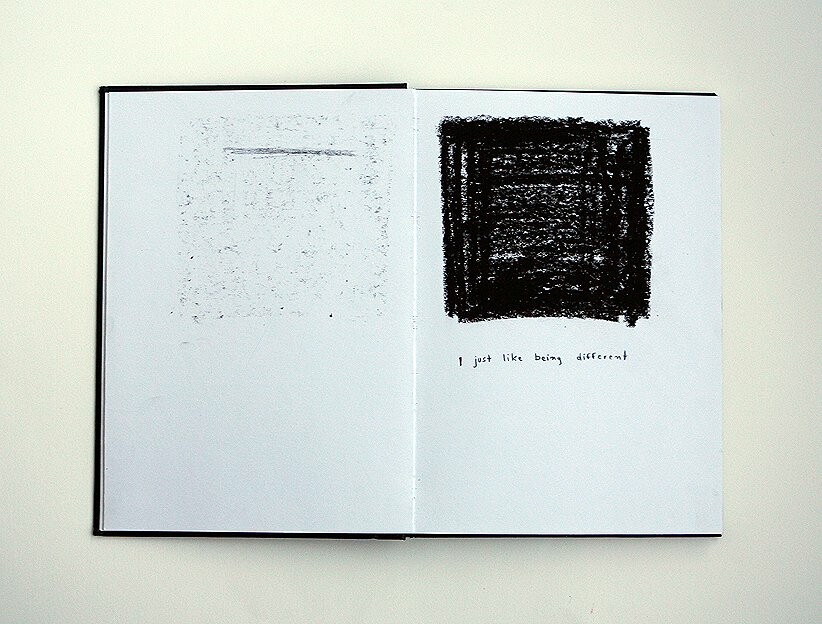 I just like being different